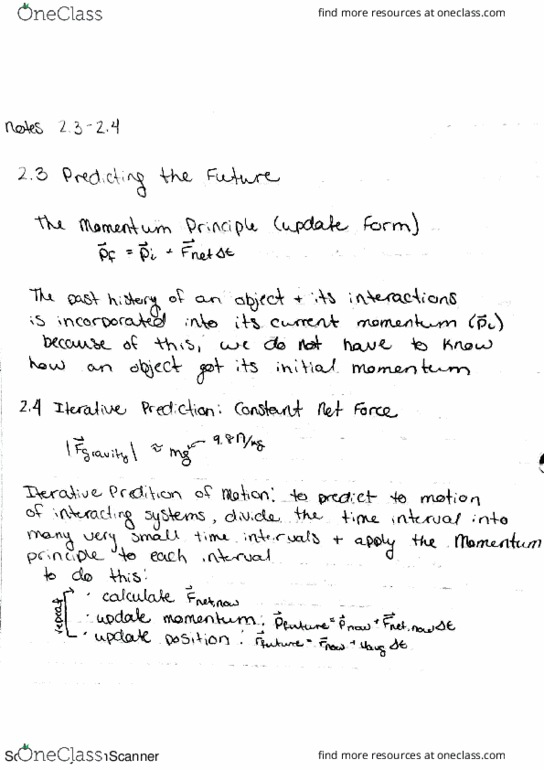 OneClass find more resources at oneclass.com
notes 2.3-2.4
2.3 Predicting the Future
The Momentum Principle (update form)
p⃗f = p⃗i + F⃗net Δt
The past history of an object + its interactions
is incorporated into its current momentum (p⃗i)
because of this, we do not have to know
how an object got its initial momentum
2.4 Iterative Prediction: Constant Net Force
|F⃗gravity| ≈ mg ← 9.8 N/kg
Iterative Prdition of Motion: to predict to motion
of interacting systems, divide the time interval into
many very small time intervals + apply the Momentum
principle to each interval
to do this:
repeat
· calculate F⃗net,now
· update momentum: p⃗future = p⃗now + F⃗net,now Δt
· update position: r⃗future = r⃗now + v⃗avg Δt
OneClass Scanner find more resources at oneclass.com